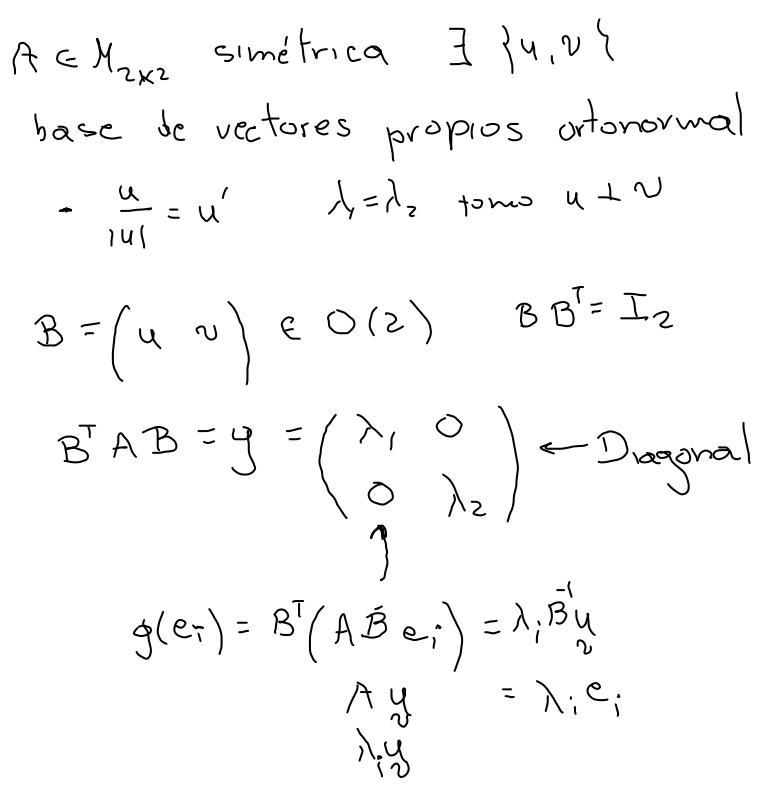 A ∈ M₂ₓ₂ simétrica ∃ {u, v}
base de vectores propios ortonormal
- u/|u| = u' λ₁ = λ₂ tomo u ⊥ v
B = (u v) ∈ O(2) B Bᵀ = I₂
Bᵀ A B = y = (λ₁ 0 ; 0 λ₂) ← Diagonal
↑
g(eᵢ) = Bᵀ(A B eᵢ) = λᵢ B⁻¹ u
v
A u = λᵢ eᵢ
v
λᵢ u
v